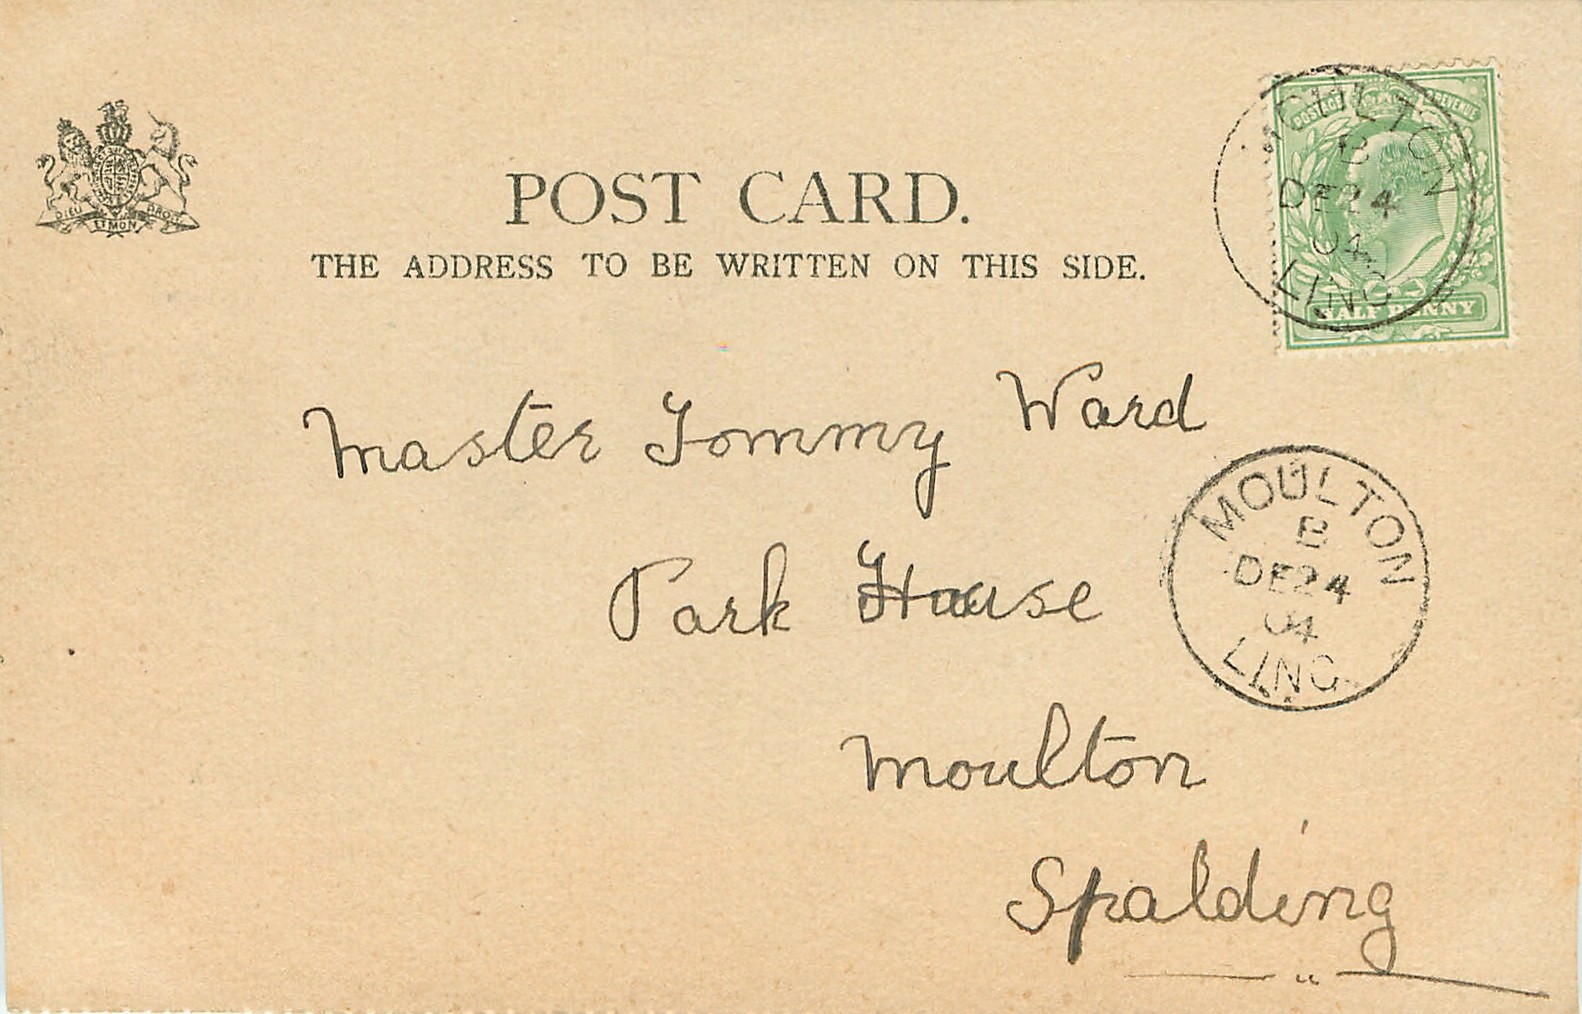 DIEU ET MON DROIT
POST CARD.
THE ADDRESS TO BE WRITTEN ON THIS SIDE.
POSTAGE & REVENUE
HALF PENNY
MOULTON
B
DE 24
04
LINC
Master Tommy Ward
Park House
Moulton
Spalding
MOULTON
B
DE 24
04
LINC